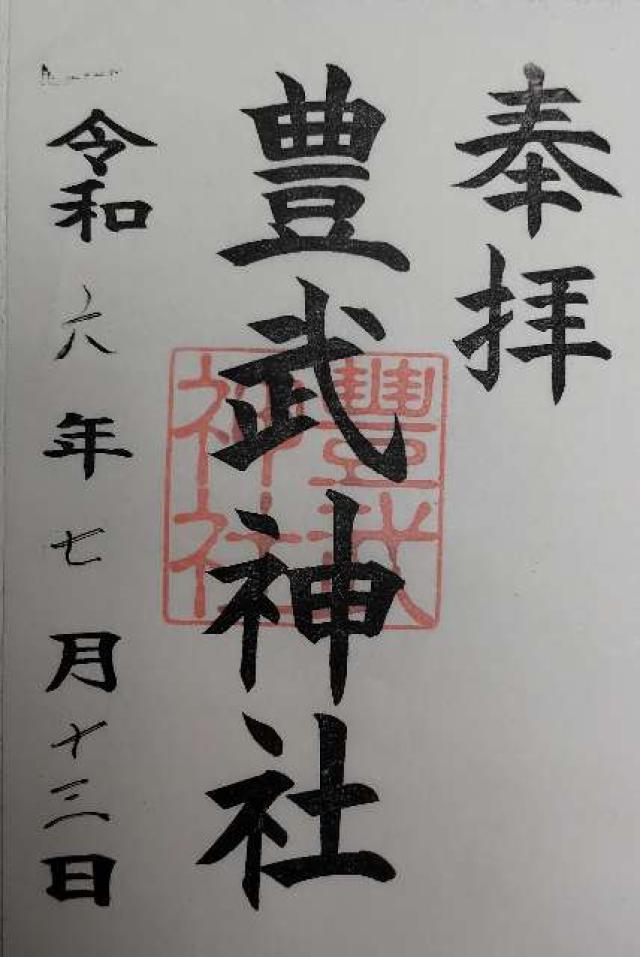 奉拝
豊武神社
豐武
神社
令和六年七月十三日